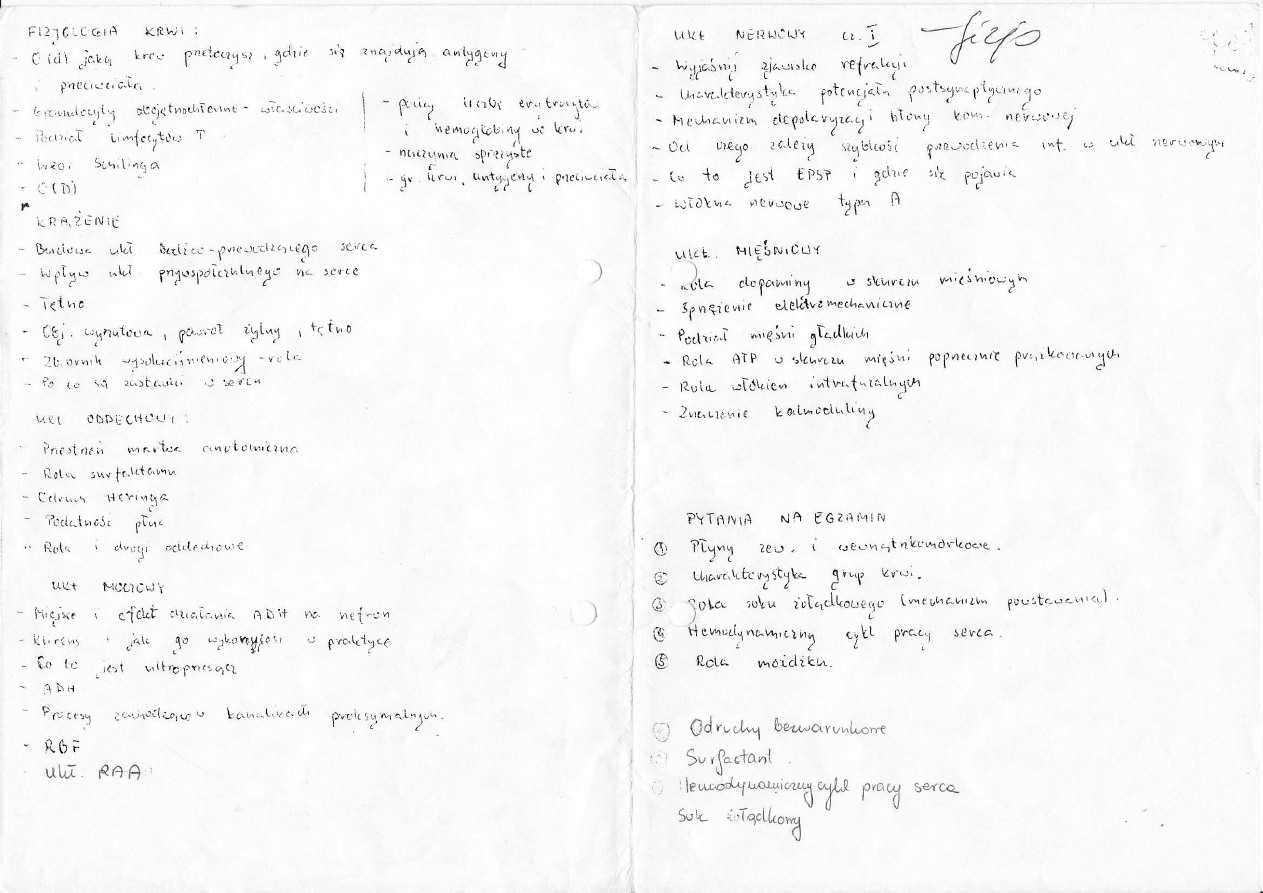 FIZJOLOGIA KRWI :
- O(d) jaką krew przetoczysz, gdzie się znajdują antygeny
i przeciwciała.
- Granulocyty obojętnochłonne - właściwości
- Podział limfocytów T
- Wzór Schilinga
- O(D)
- podaj liczbę erytrocytów
i hemoglobiny we krwi
- naczynia sprężyste
- gr. krwi, antygeny i przeciwciała
KRĄŻENIE
- Budowa ukł. bodźco-przewodzącego serca
- Wpływ ukł. przywspółczulnego na serce
- Tętno
- Obj. wyrzutowa, powrót żylny, tętno
- Zbiornik wysokociśnieniowy - rola
- Po co są zastawki w sercu
UKŁ ODDECHOWY :
- Przestrzeń martwa anatomiczna
- Rola surfaktantu
- Odruch Heringa
- Podatność płuc
- Rola i drogi oddechowe
UKŁ MOCZOWY
- Miejsce i efekt działania ADH na nefron
- Klirens i jak go wykorzystasz w praktyce
- Co to jest ultraprzesącz
- ADH
- Procesy zachodzące w kanalikach proksymalnych.
- RBF
- Ukł. RAA
UKŁ NERWOWY cz. I fizjo
- Wyjaśnij zjawisko refrakcji
- Charakterystyka potencjału postsynaptycznego
- Mechanizm depolaryzacji błony kom. nerwowej
- Od czego zależy szybkość przewodzenia inf. w ukł nerwowym
- Co to jest EPSP i gdzie się pojawia
- Włókna nerwowe typu A
UKŁ. MIĘŚNIOWY
- Rola dopaminy w skurczu mięśniowym
- Sprzężenie elektromechaniczne
- Podział mięśni gładkich
- Rola ATP w skurczu mięśni poprzecznie prążkowanych
- Rola włókien intrafuzalnych
- Znaczenie kalmoduliny
PYTANIA NA EGZAMIN
① Płyny zew. i wewnątrzkomórkowe.
② Charakterystyka grup krwi.
③ Rola soku żołądkowego (mechanizm powstawania).
④ Hemodynamiczny cykl pracy serca.
⑤ Rola móżdżku.
Odruchy bezwarunkowe
Surfactant.
Hemodynamiczny cykl pracy serca
Sok żołądkowy